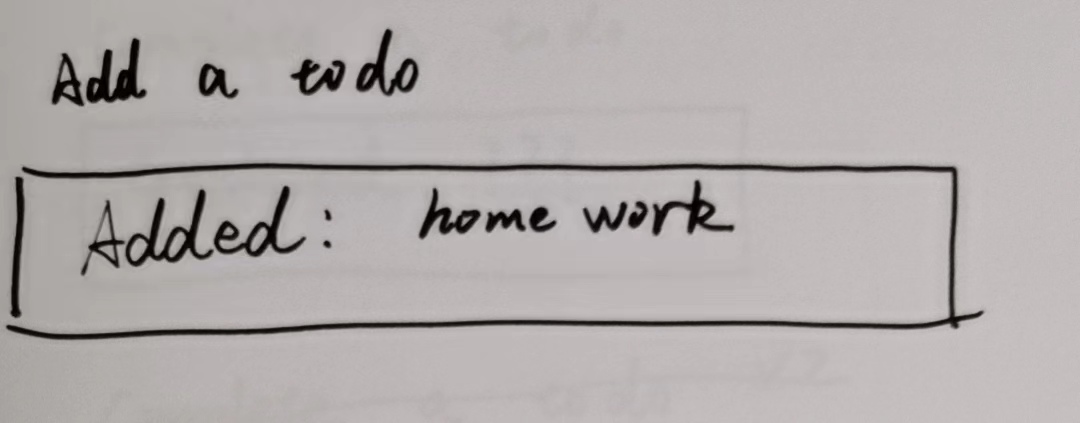 Add a todo
Added: home work